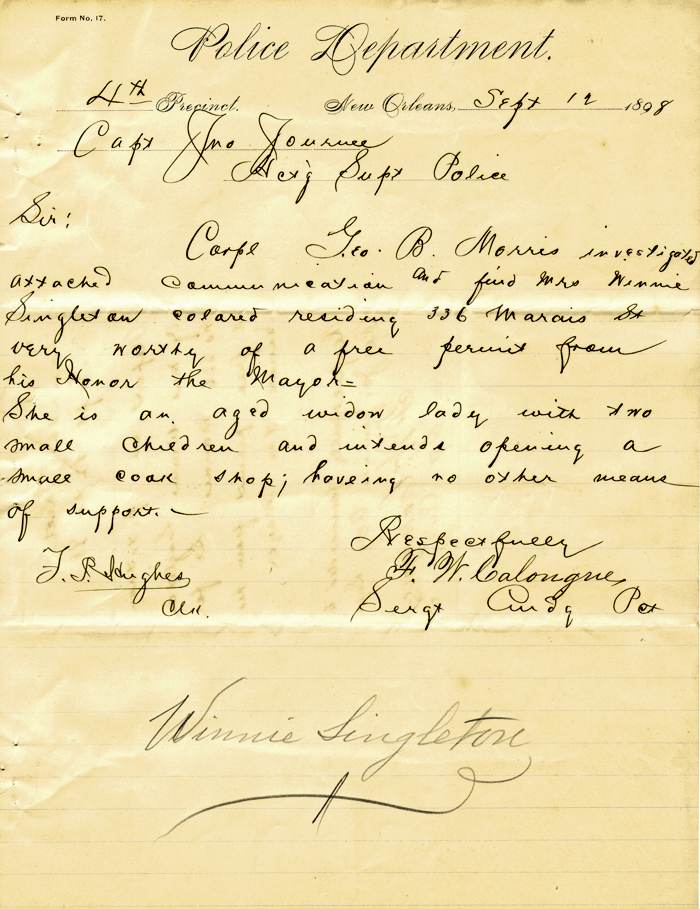 Form No. 17.
Police Department.
4th Precinct. New Orleans, Sept 12 1898
Capt Jno Journee
Act'g Supt Police
Sir:
Corpl Geo. B. Morris investigated
attached communication and find Mrs Winnie
Singleton colared residing 336 Marais St
very worthy of a free permit from
his Honor the Mayor=
She is an aged widow lady with two
small children and intends opening a
small cook shop; haveing no other means
of support. —
Respectfully
T. P. Hughes F. W. Calongne
Clk. Sergt Comdg Pct
Winnie Singleton